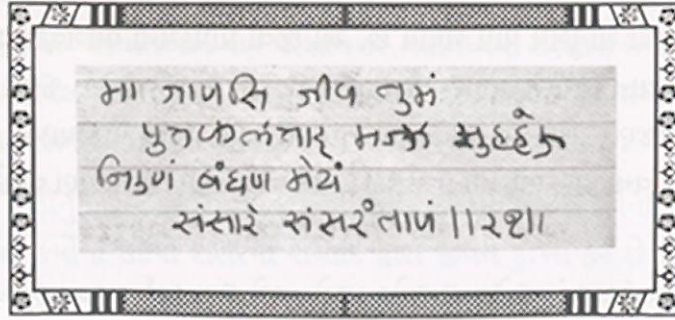 मा जाणसि जीव तुमं
पुत्तकलत्ताइ मज्झ सुहहेऊ
निउणं बंधण मेयं
संसारे संसरंताणं ||२१||